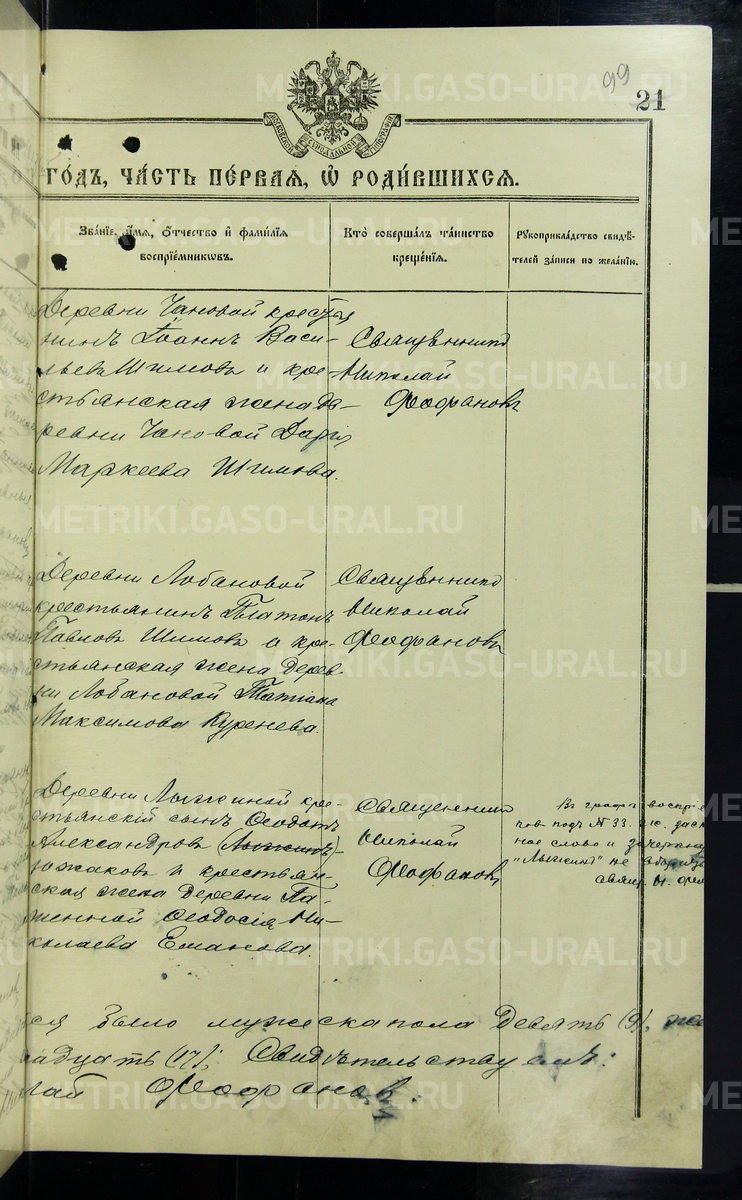 99
21
МОСКОВСКОЙ СѴНОДАЛЬНОЙ ТИПОГРАФІИ
ГОДЪ, ЧАСТЬ ПЕРВАЯ, Ѡ РОДИВШИХСЯ.
Званіе, имя, отчество и фамилія воспріемниковъ.
Кто совершалъ таинство крещенія.
Рукоприкладство свидѣтелей записи по желанію.
Деревни Чановой крестья
нинъ Іоаннъ Васи-
льевъ Шимовъ и кре-
стьянская жена де-
ревни Чановой Дарія
Маркеева Шимова.
Священникъ
Николай
Ѳеофановъ
Деревни Лобановой
крестьянинъ Платонъ
Павловъ Шимовъ и кре-
стьянская жена дерев-
ни Лобановой Татіана
Максимова Куренева.
Священникъ
Николай
Ѳеофановъ
Деревни Лыжиной кре-
стьянскій сынъ Ѳеодотъ
Александровъ (Лыжинъ)-
южаковъ и крестьян-
ская жена деревни
Ѳеодосія Ни-
колаева Еманова.
Священникъ
Николай
Ѳеофановъ
Въ графѣ воспріе
подъ № 33
ное слово и зачеркну
"Лыжинъ" не
свящ. Н. Ѳео
ся было мужеска пола девять (9),
надцать (17); Свидѣтельствуемъ:
лай Ѳеофановъ.
METRIKI.GASO-URAL.RU